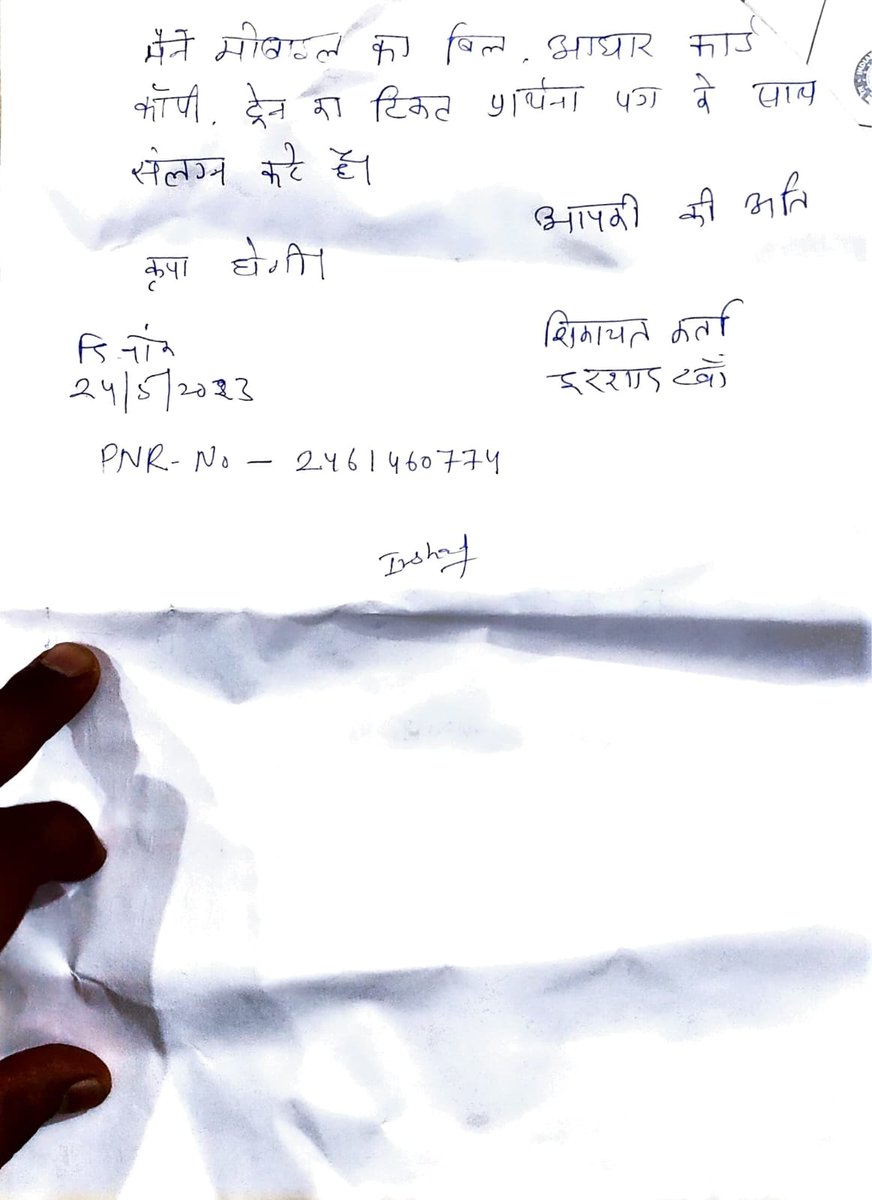 मैने मोबाइल का बिल, आधार कार्ड
कॉपी, ट्रेन का टिकट प्रार्थना पत्र के साथ
संलग्न करे है।
आपकी की अति
कृपा होगी।
दिनांक
24/5/2023
शिकायत कर्ता
इरशाद खाँ
PNR-No - 2461460774
Irshad